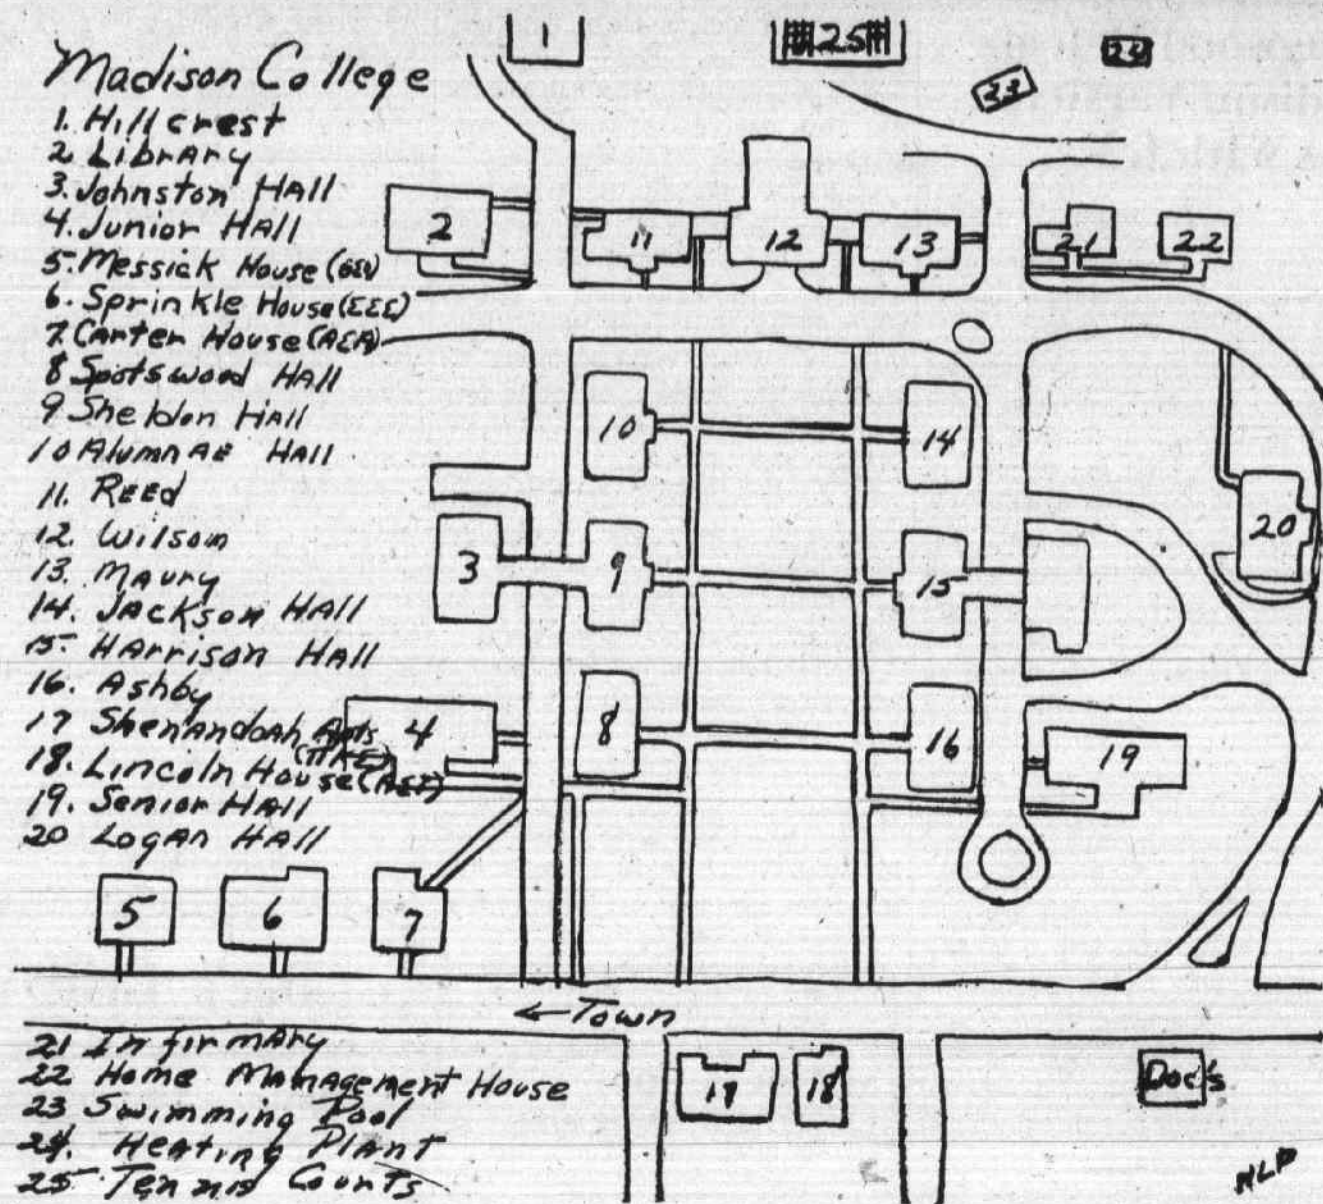 Madison College
1. Hillcrest
2 Library
3. Johnston Hall
4. Junior Hall
5. Messick House
6. Sprinkle House (ΣΣΣ)
7. Carter House (AΣA)
8 Spotswood Hall
9 Sheldon Hall
10 Alumnae Hall
11. Reed
12. Wilson
13. Maury
14. Jackson Hall
15. Harrison Hall
16. Ashby
17 Shenandoah Apts
18. Lincoln House
19. Senior Hall
20 Logan Hall
21 Infirmary
22 Home Management House
23 Swimming Pool
24. Heating Plant
25 Tennis Courts
1
25
24
23
2
11
12
13
21
22
10
14
20
3
9
15
4
8
16
19
5
6
7
← Town
17
18
Doc's
NLP